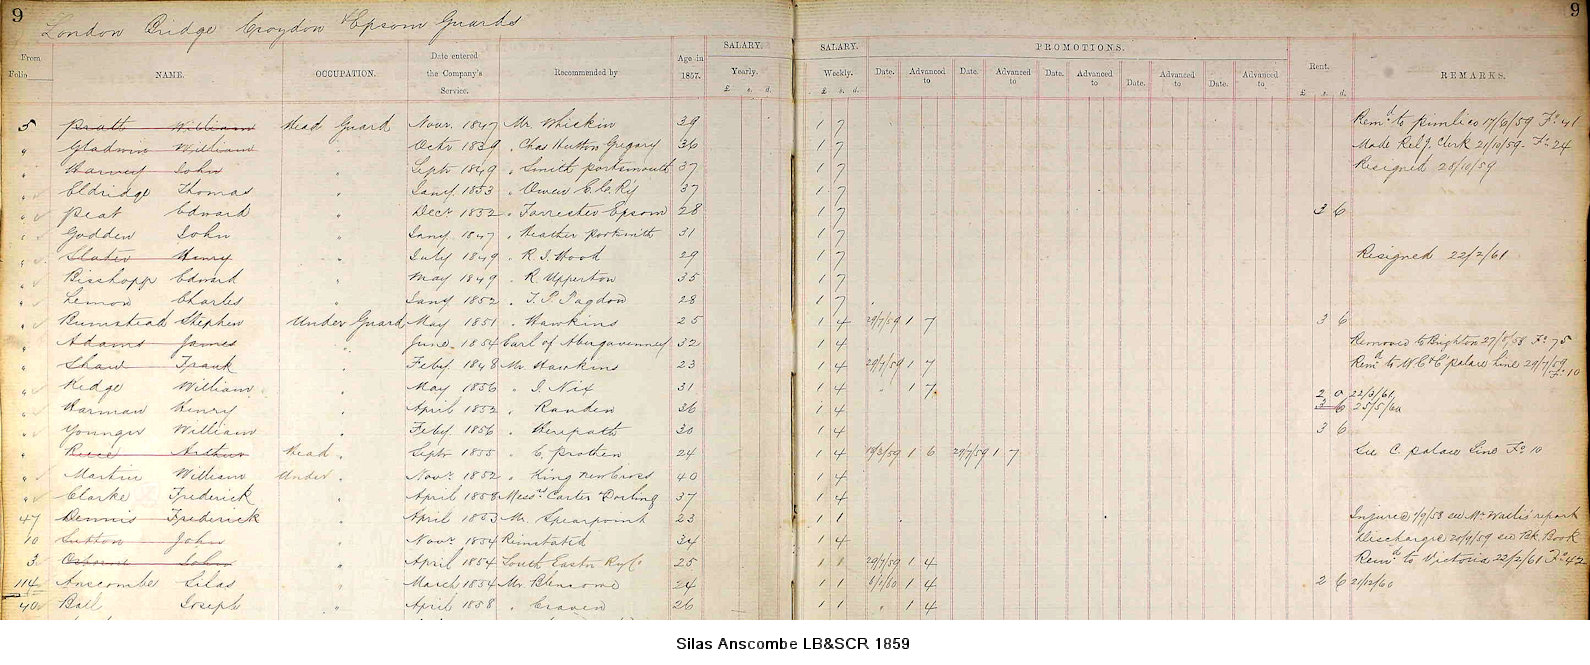 9 London Bridge Croydon & Epsom Guards 9
From Folio NAME. OCCUPATION. Date entered the Company's Service. Recommended by Age in 1857. SALARY. Yearly. £ s. d. SALARY. Weekly. £ s. d. PROMOTIONS. Date. Advanced to Date. Advanced to Date. Advanced to Date. Advanced to Date. Advanced to Rent. £ s. d. REMARKS.
5 Pratt William Head Guard Novr. 1847 Mr Whiskin 39 1 7 Remd to Pimlico 17/6/59 Fo 41
" Gladwin William " Octr 1839 " Chas Hutton Gregory 36 1 7 Made Relg. Clerk 21/10/59. Fo 24
" Harvey John " Septr 1849 " Smith Portsmouth 37 1 7 Resigned 28/10/59
" Eldridge Thomas " Jany 1853 " Owen 37 1 7
" Peat Edward " Decr 1852 " Forrester Epsom 28 1 7 3 6
" Godden John " Jany 1847 " Heather Portsmith 31 1 7
" Slater Henry " July 1849 " R. J. Hook 29 1 7 Resigned 22/2/61
" Bisshopp Edward " May 1849 " R. Upperton 35 1 7
" Lemon Charles " Jany 1852 " Pagdon 28 1 7
" Bumstead Stephen Under Guard May 1851 " Hawkins 25 1 4 29/7/59 1 7 3 6
" Adams James " June 1854 Earl of Abergavenney 32 1 4 Removed to Brighton Fo 75
" Shaw Frank " Feby 1848 Mr Hawkins 23 1 4 29/7/59 1 7 Remd to W E & C Palace Line 29/7/59 Fo 10
" Kedge William " May 1856 " J. Nix 31 1 4 " 1 7 2 0 22/3/61
" Harman Henry " April 1852 " Randen 36 1 4 3 6 25/5/60
" Younger William " Feby 1856 " Herapath 30 1 4 3 6
" Rice Arthur Head " Septr 1855 " C. Prothen 24 1 4 1 6 29/7/59 1 7 See C. Palace Line Fo 10
" Martin William Under " Novr 1852 " King New Cross 40 1 4
" Clarke Frederick " April 1858 Messrs Carter & Dorling 37 1 4
47 Dennis Frederick " April 1853 Mr. Spearpoint 23 1 1 Injured 1/9/58 see Mr report
10 Sutton John " Novr 1854 Reinstated 34 1 4 Discharged 20/9/59 see Book
3 Osborne John " April 1854 South Eastn Ry Co 25 1 1 29/7/59 1 4 Remd to Victoria 22/2/61 Fo 42
114 Anscombe Silas " March 1854 Mr Blencowe 24 1 1 1 4 2 6 21/12/60
40 Ball Joseph " April 1858 " Craven 26 1 1 " 1 4
Silas Anscombe LB&SCR 1859